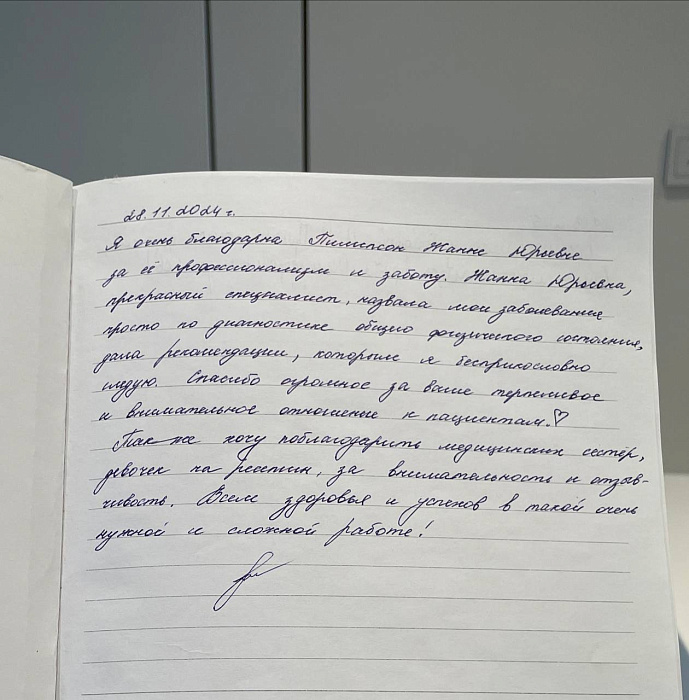 28.11.2024 г.
Я очень благодарна Пилипсон Жанне Юрьевне
за её профессионализм и заботу. Жанна Юрьевна,
прекрасный специалист, назвала мои заболевание
просто по диагностике общего физического состояния,
дала рекомендации, которым я бесприкословно
следую. Спасибо огромное за ваше терпеливое
и внимательное отношение к пациентам.♡
Так-же хочу поблагодарить медицинских сестёр,
девочек на ресепшн, за внимательность и отзыв-
чивость. Всем здоровья и успехов в такой очень
нужной и сложной работе!